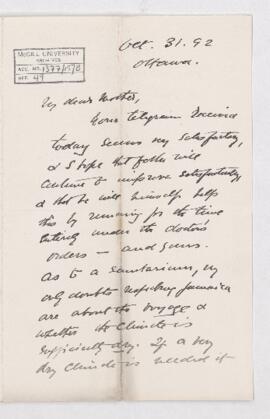 McGILL UNIVERSITY
ARCHIVES
ACC. NO.
REF. 49
Oct. 31. 92
Ottawa.
My dear Mother,
Your telegram received
today seems very satisfactory,
& I hope that father will
continue to improve satisfactorily
& that he will himself help
this by remaining for the time
entirely under the doctor's
orders — and yours.
As to a sanitarium, my
only doubts regarding Jamaica
are about the voyage &
whether the climate is
sufficiently dry. If a very
dry climate is needed it